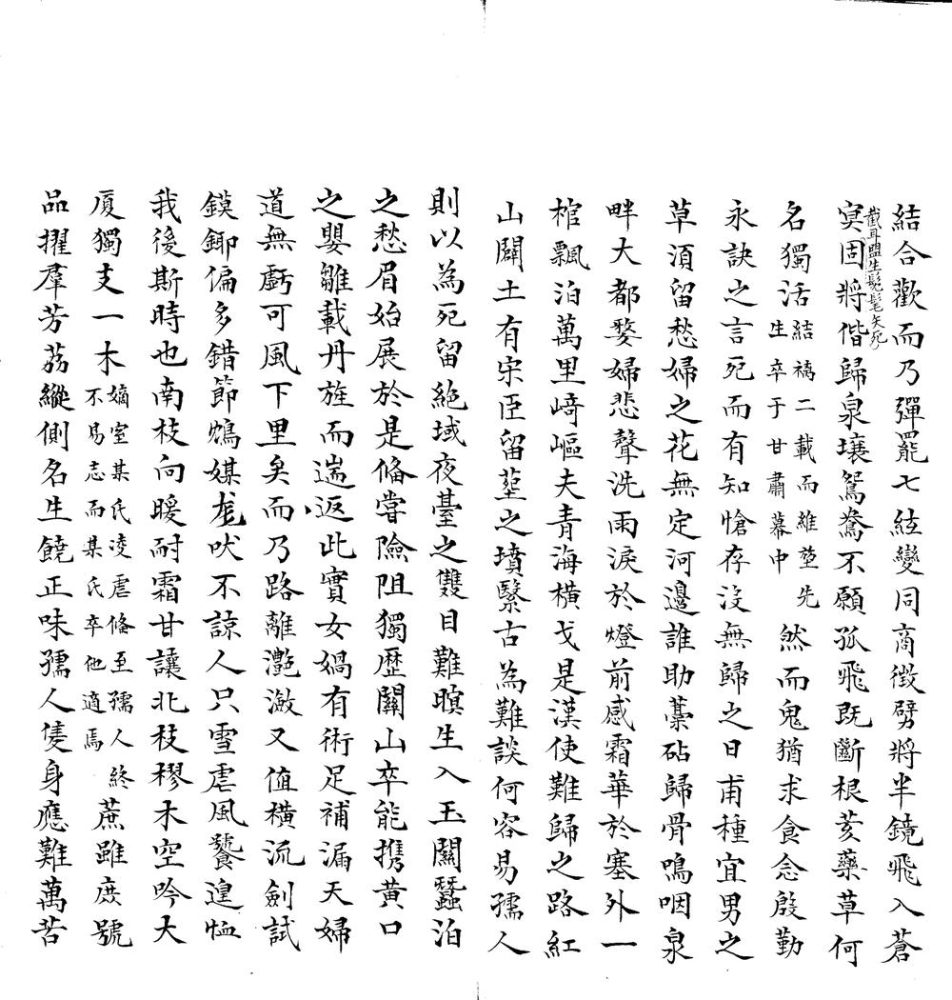 結合歡而乃彈罷七絃變同商徵劈將半鏡飛入蒼
截耳盟生髡髦矢死
冥固將偕歸泉壤鴛鴦不願孤飛既斷根荄藥草何
名獨活結褵二載而維堃先生卒于甘肅幕中然而鬼猶求食念殷勤
永訣之言死而有知愴存沒無歸之日甫種宜男之
草須留愁婦之花無定河邊誰助藁砧歸骨鳴咽泉
畔大都嫠婦悲聲洗雨淚於燈前感霜華於塞外一
棺飄泊萬里崎嶇夫青海橫戈是漢使難歸之路紅
山闢土有宋臣留塟之墳繄古為難談何容易孺人
則以為死留絕域夜臺之雙目難瞑生入玉關蠶泊
之愁眉始展於是偹嘗險阻獨歷關山卒能携黃口
之嬰雛載丹旌而遄返此實女媧有術足補漏天婦
道無虧可風下里矣而乃路離灧澦又值橫流劍試
鏌鋣偏多錯節鴆媒尨吠不諒人只雪虐風饕遑恤
我後斯時也南枝向暖耐霜甘讓北枝樛木空吟大
厦獨支一木嫡室某氏凌虐偹至孺人終不易志而某氏卒他適焉蔗雖庶號
品擢羣芳荔縱側名生饒正味孺人隻身應難萬苦